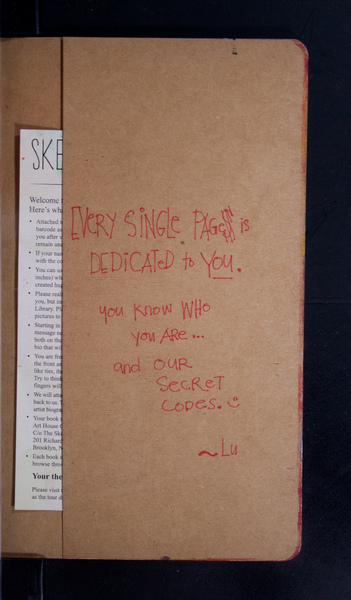 SKE
Welcome
Here's wha
• Attached
barcode as
you after
remain un
• If your nam
with the co
• You can us
inches) wh
created hug
• Please reali
you, but in
Library. Pl
pictures to
• Starting in
message ne
both on the
bio that wil
• You are fre
the front an
like ties, the
Try to think
fingers will
• We will atta
back to us. T
artist biogra
• Your book
Art House C
C/o The Ske
201 Richard
Brooklyn, N
• Each book i
browse thro
Your the
Please visit
as the tour d
EVERY SINGLE PAGE is
DEDICATED to YOU.
you KNOW WHO
you ARE...
and OUR
SECRET
CODES. :)
~Lu